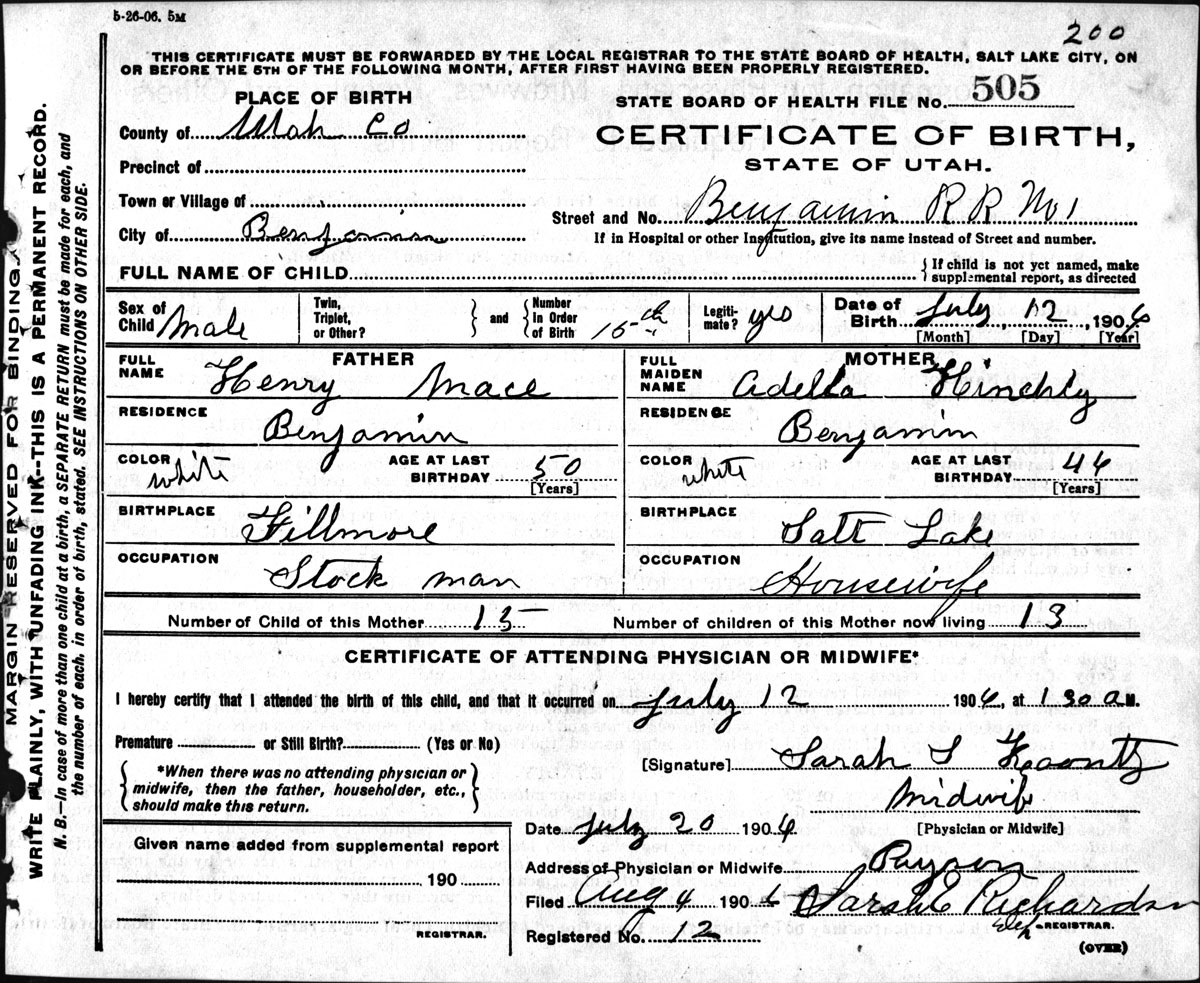 5-26-06. 5M
200
THIS CERTIFICATE MUST BE FORWARDED BY THE LOCAL REGISTRAR TO THE STATE BOARD OF HEALTH, SALT LAKE CITY, ON
OR BEFORE THE 5TH OF THE FOLLOWING MONTH, AFTER FIRST HAVING BEEN PROPERLY REGISTERED.
PLACE OF BIRTH
STATE BOARD OF HEALTH FILE No. 505
County of Utah Co
CERTIFICATE OF BIRTH,
STATE OF UTAH.
Precinct of
Town or Village of
Street and No. Benjamin R R No 1
City of Benjamin
If in Hospital or other Institution, give its name instead of Street and number.
FULL NAME OF CHILD
If child is not yet named, make
supplemental report, as directed
Sex of Child Male
Twin, Triplet, or Other?
and
Number In Order of Birth 15th
Legiti-mate? yes
Date of Birth July 12, 1906
[Month] [Day] [Year]
FATHER
FULL NAME Henry Mace
MOTHER
FULL MAIDEN NAME Adella Hinchly
RESIDENCE Benjamin
RESIDENCE Benjamin
COLOR white
AGE AT LAST BIRTHDAY 50 [Years]
COLOR white
AGE AT LAST BIRTHDAY 44 [Years]
BIRTHPLACE Fillmore
BIRTHPLACE Salt Lake
OCCUPATION Stock man
OCCUPATION Housewife
Number of Child of this Mother 15
Number of children of this Mother now living 13
CERTIFICATE OF ATTENDING PHYSICIAN OR MIDWIFE*
I hereby certify that I attended the birth of this child, and that it occurred on July 12 1906, at 1 30 a M.
Premature or Still Birth? (Yes or No)
[Signature] Sarah S Koontz
*When there was no attending physician or
midwife, then the father, householder, etc.,
should make this return.
Midwife
[Physician or Midwife]
Date July 20 1906
Given name added from supplemental report
190
REGISTRAR.
Address of Physician or Midwife Payson
Filed Aug 4 1906 Sarah E Richardson
Registered No. 12
Dep REGISTRAR.
(OVER)
MARGIN RESERVED FOR BINDING
WRITE PLAINLY, WITH UNFADING INK--THIS IS A PERMANENT RECORD.
N. B.—In case of more than one child at a birth, a SEPARATE RETURN must be made for each, and
the number of each, in order of birth, stated. SEE INSTRUCTIONS ON OTHER SIDE.